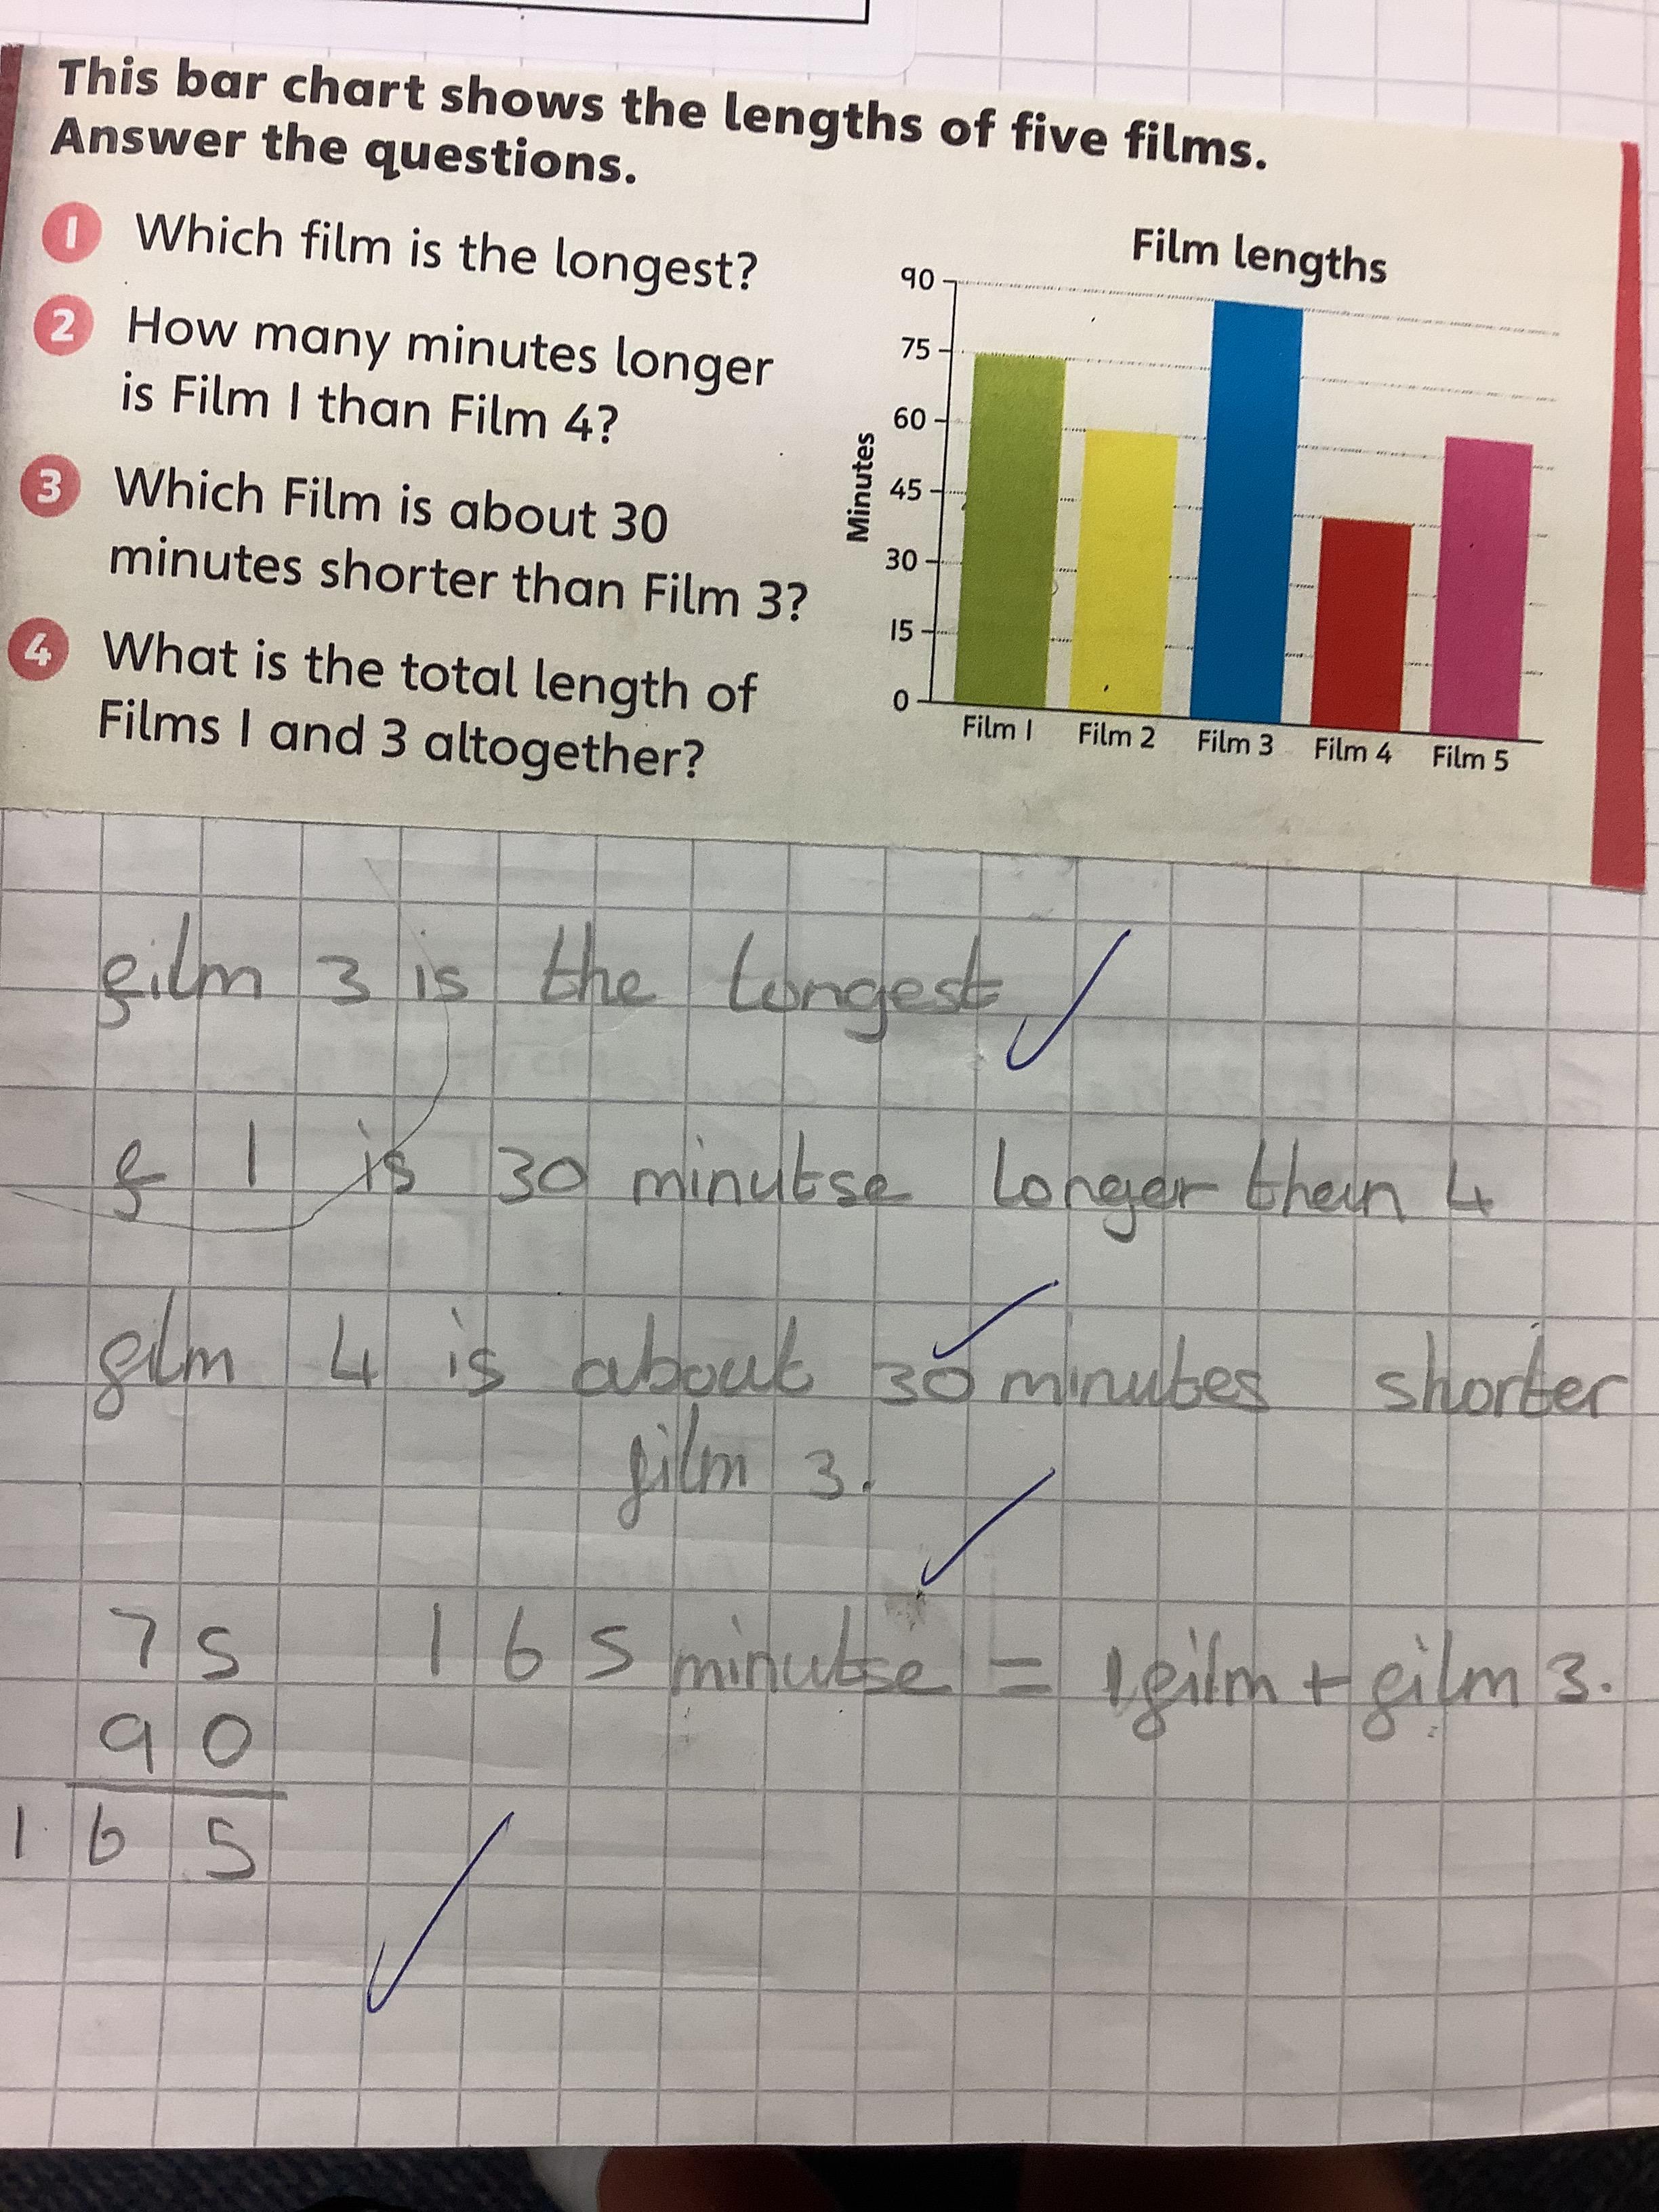 This bar chart shows the lengths of five films.
Answer the questions.
1 Which film is the longest?
2 How many minutes longer
is Film 1 than Film 4?
3 Which Film is about 30
minutes shorter than Film 3?
4 What is the total length of
Films 1 and 3 altogether?
Film lengths
Minutes
90
75
60
45
30
15
0
Film 1 Film 2 Film 3 Film 4 Film 5
film 3 is the longest
f 1 is 30 minutse longer then 4
film 4 is about 30 minutes shorter
film 3.
75 165 minutse = 1 film + film 3.
90
165